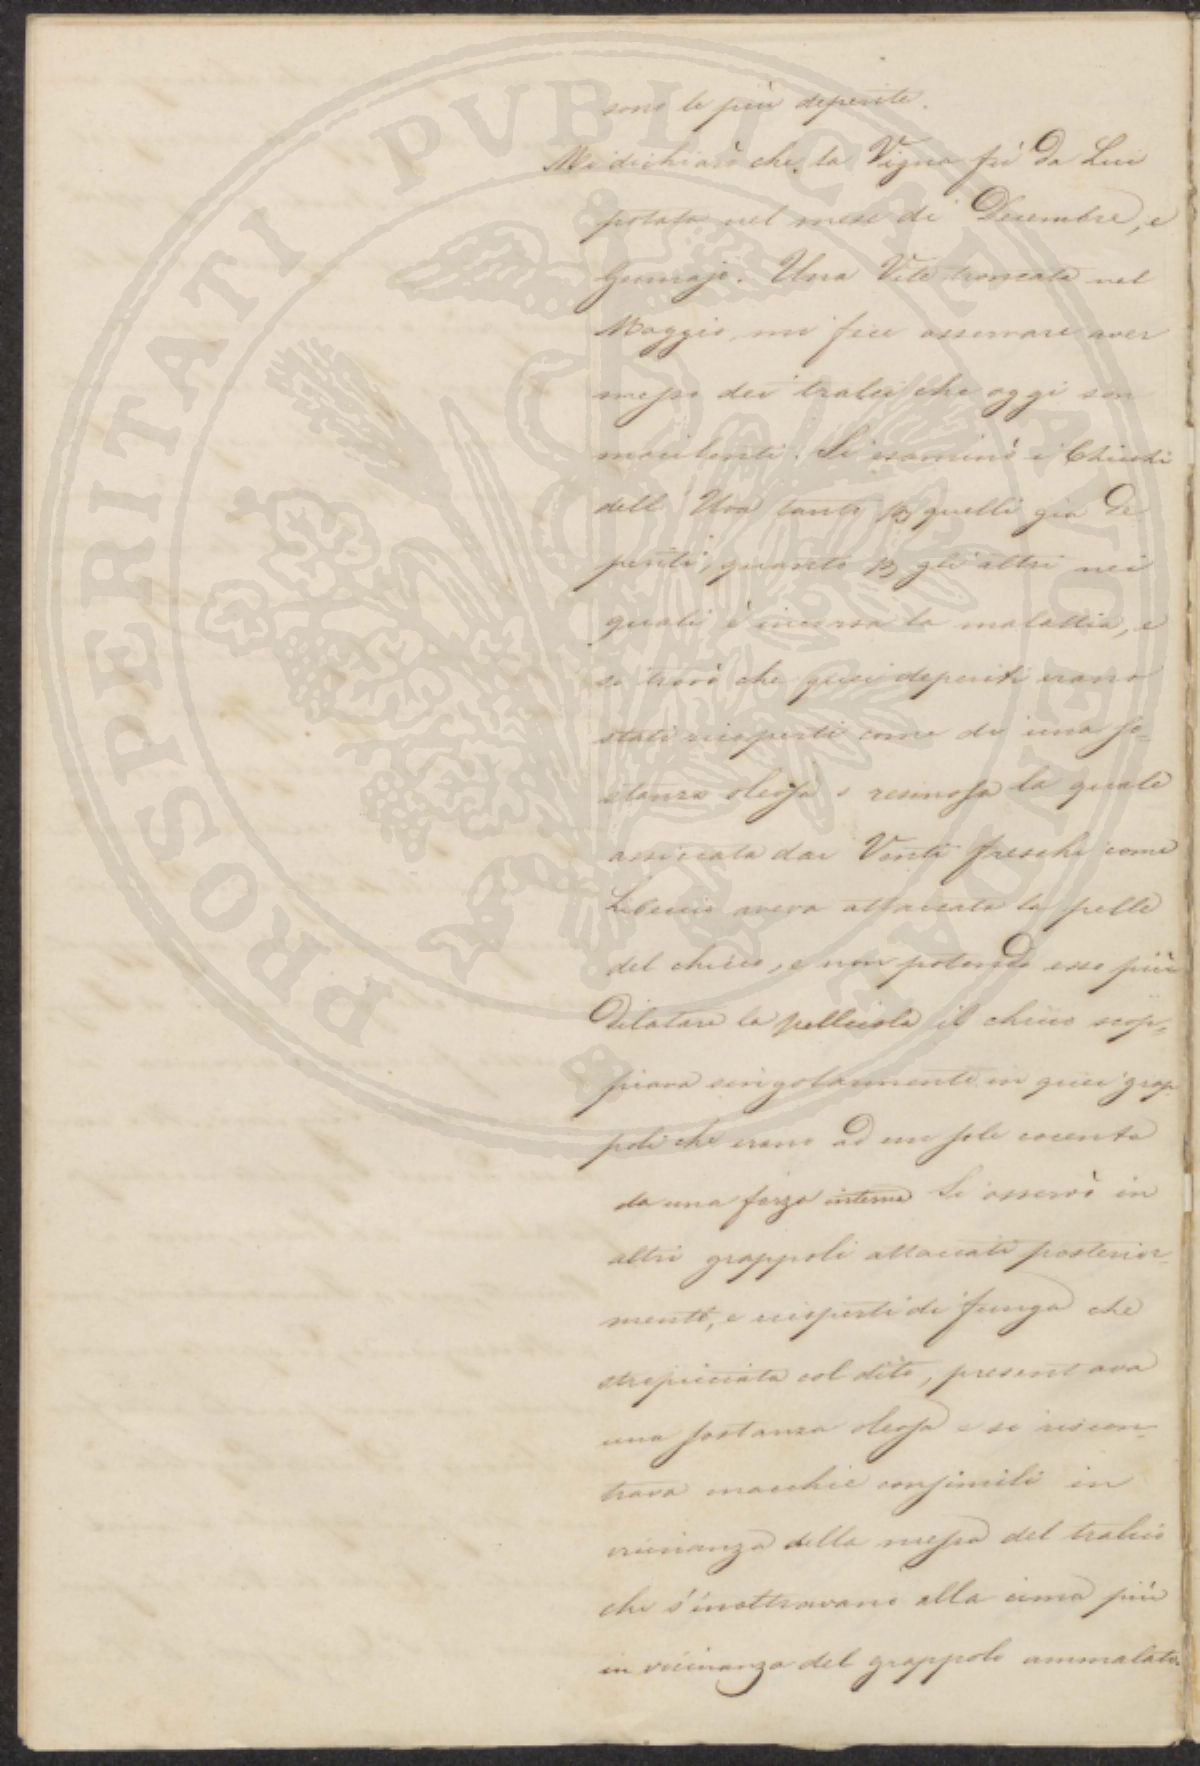 sono le più deperite.
Mi dichiarò che la Vigna fù da Lui
potata nel mese di Decembre, e
Gennajo. Una Vite troncata nel
Maggio mi fece osservare aver
messo dei tralci che oggi son
macilenti. Si esaminò i Chicchi
dell'Uva tanto p quelli già de
periti, quanto p gli altri nei
quali è incorsa la malattia, e
si trovò che quei deperiti erano
stati ricoperti come di una so-
stanza oleosa o resinosa la quale
assiccata dai Venti freschi come
Libeccio aveva attaccata la pelle
del chicco, e non potendo esso più
dilatare la pellicola il chicco scop-
piava singolarmente in quei grap
poli che erano ad un sole cocente
da una forza interna Si osservò in
altri grappoli attaccati posterior-
mente, e ricoperti di funga che
stropicciata col dito, presentava
una sostanza oleosa e si riscon-
trava macchie consimili in
vicinanza della messa del tralcio
che s'inoltravano alla cima più
in vicinanza del grappolo ammalato.
PROSPERITATI PVBLICAE AVGENDAE